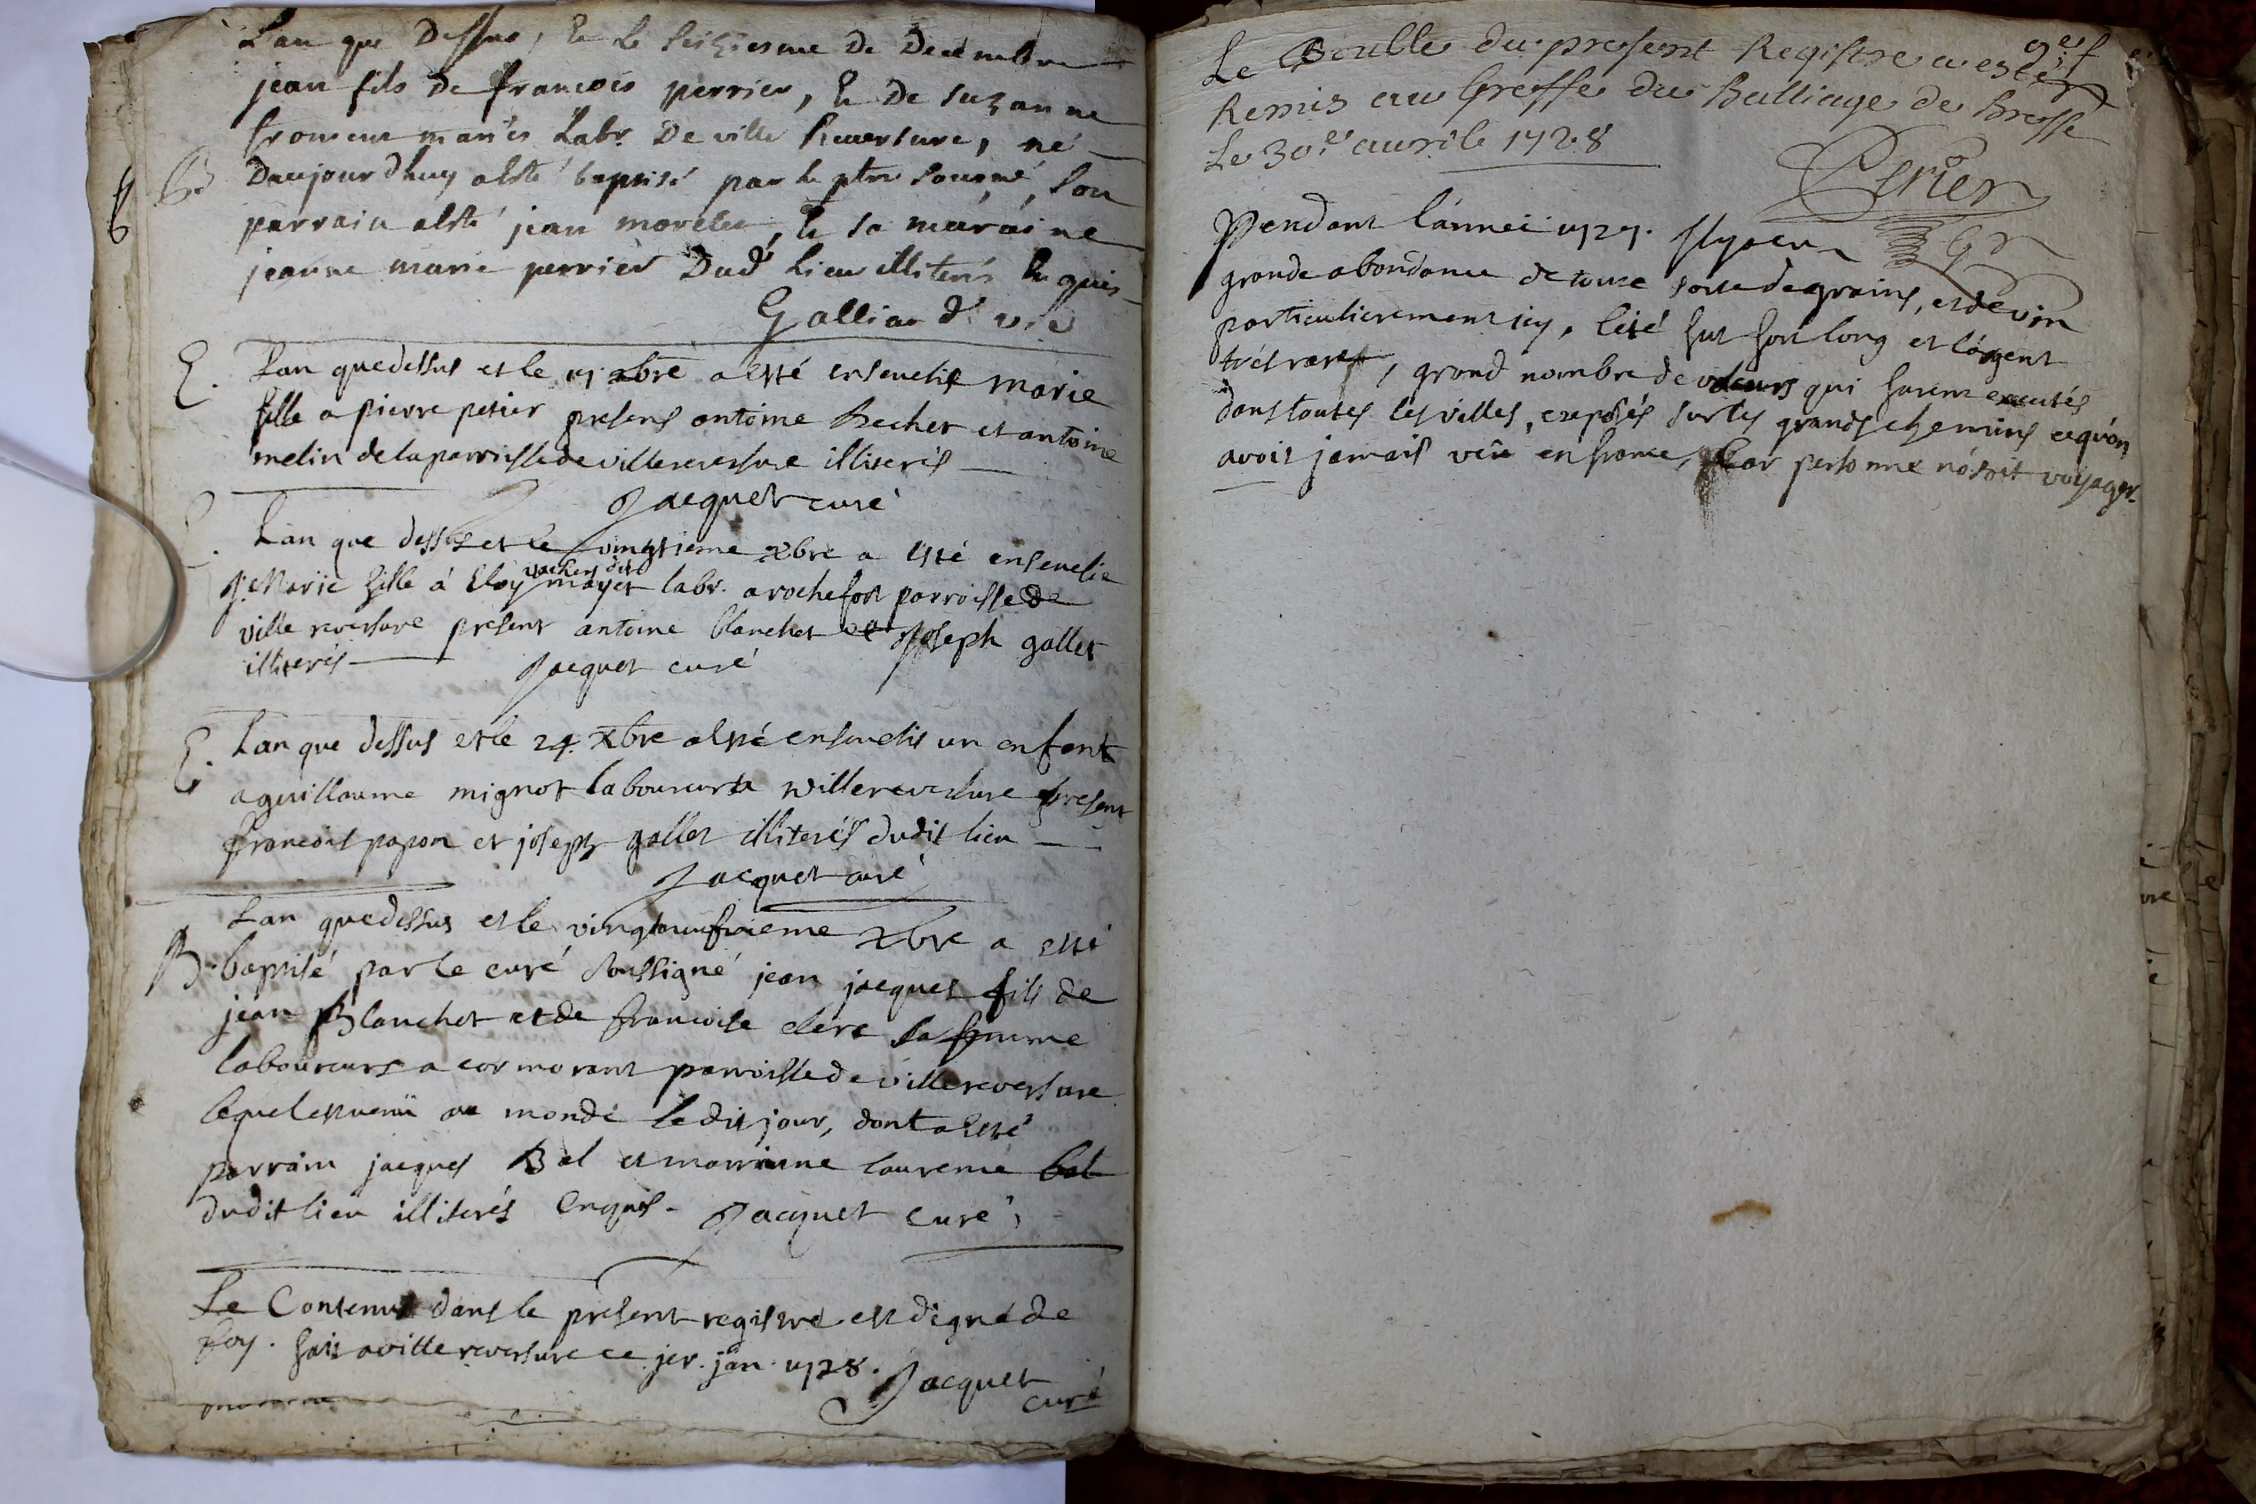 Lan que Dessus, Et le Seiziesme De Decembre
jean fils De francois perrier, Et De Suzanne
fromeur mariés Labr. De ville Reversure, né
B
Daujourdhuy a esté baptisé par le ptre sousné, Son
parrain a esté jean morelet, Et sa mâraine
jeanne marie perrier Dud. Lieu illiterés Enquis
Galliar d. vic
E. Lan que dessus et le 17 xbre a esté ensevelie marie
fille a pierre perier presens antoine Becher et antoine
melin de la parroisse de villereversure illiterés
Jacquet curé
Lan que dessus et le vingtieme xbre a esté ensevelie
vacher dit
Marie fille á Eloy mayet labr. a rochefort parroisse de
ville reversure present antoine blanchet et Joseph gallet
illiterés Jacquet curé
E. Lan que dessus et le 24. xbre a esté ensevelis un enfant
a guillaume mignot laboureur a villereversure present
francois papon et joseph gallet illiterés dudit lieu
Jacquet curé
Lan que dessus et le xbre a esté
B. baptisé par le curé soussigné jean jacques fils de
jean Blanchet et de francoise clerc sa femme
laboureurs a cormorant parroisse de villereversure
lequel est venû au monde ledit jour, dont a esté
parrain jacques Bal et marrienne laurence bal
dudit lieu illiterés Enquis. Jacquet curé,
Le Contenu dans le present registre est digne de
foy. fait a villereversure ce jer. jan. 1728. Jacquet
curé
Le Double du present Registre a esté
Remis au Greffe du Balliage de Bresse
Le 30.e avril 1728
Perier
Pendant l'année 1727. il y a eu
grande abondance de toute sorte de grains, et de vin
particulierement icy, l'eté fut fort long et l'argent
trés rare, grand nombre de voleurs qui furent executés
dans toutes les villes, exposés sur les grands chemins ce qu'on
avoit jamais vêu en france, Car personne n'ósoit voyager.